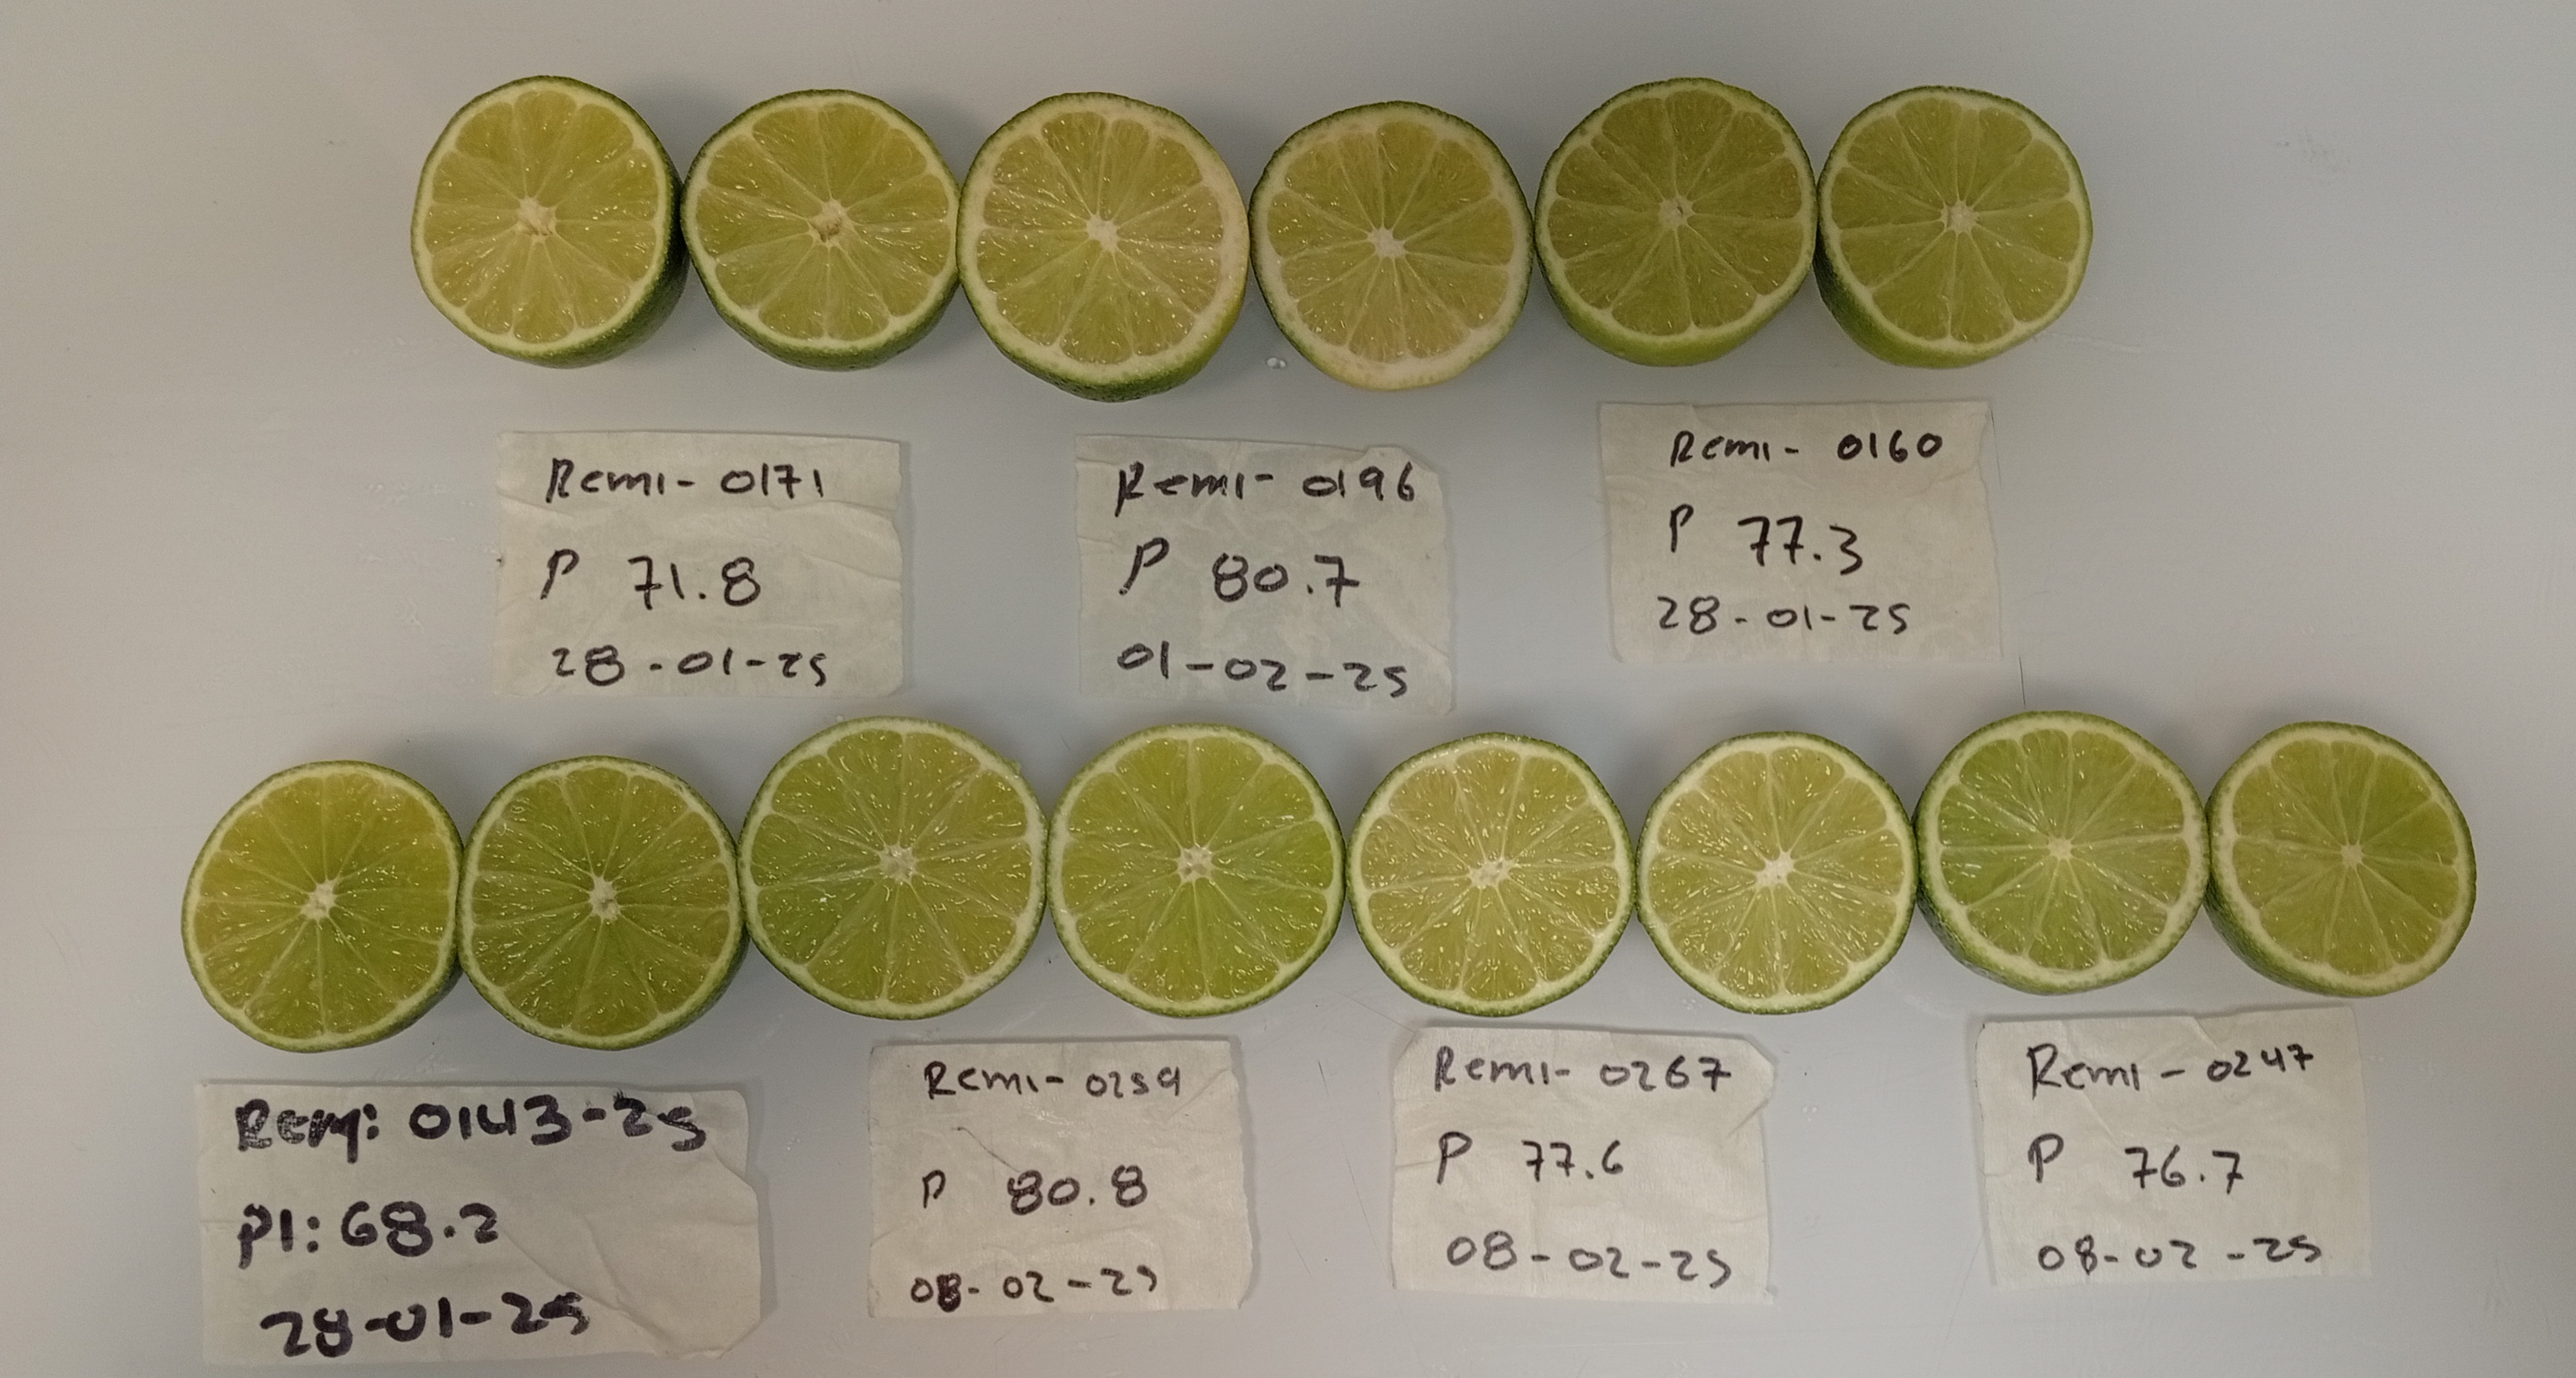 Remi- 0171
P 71.8
28-01-25
Remi- 0196
P 80.7
01-02-25
Remi- 0160
P 77.3
28-01-25
Remi: 0143-25
P1: 68.2
28-01-25
Remi- 0259
P 80.8
08-02-25
Remi- 0267
P 77.6
08-02-25
Remi- 0247
P 76.7
08-02-25